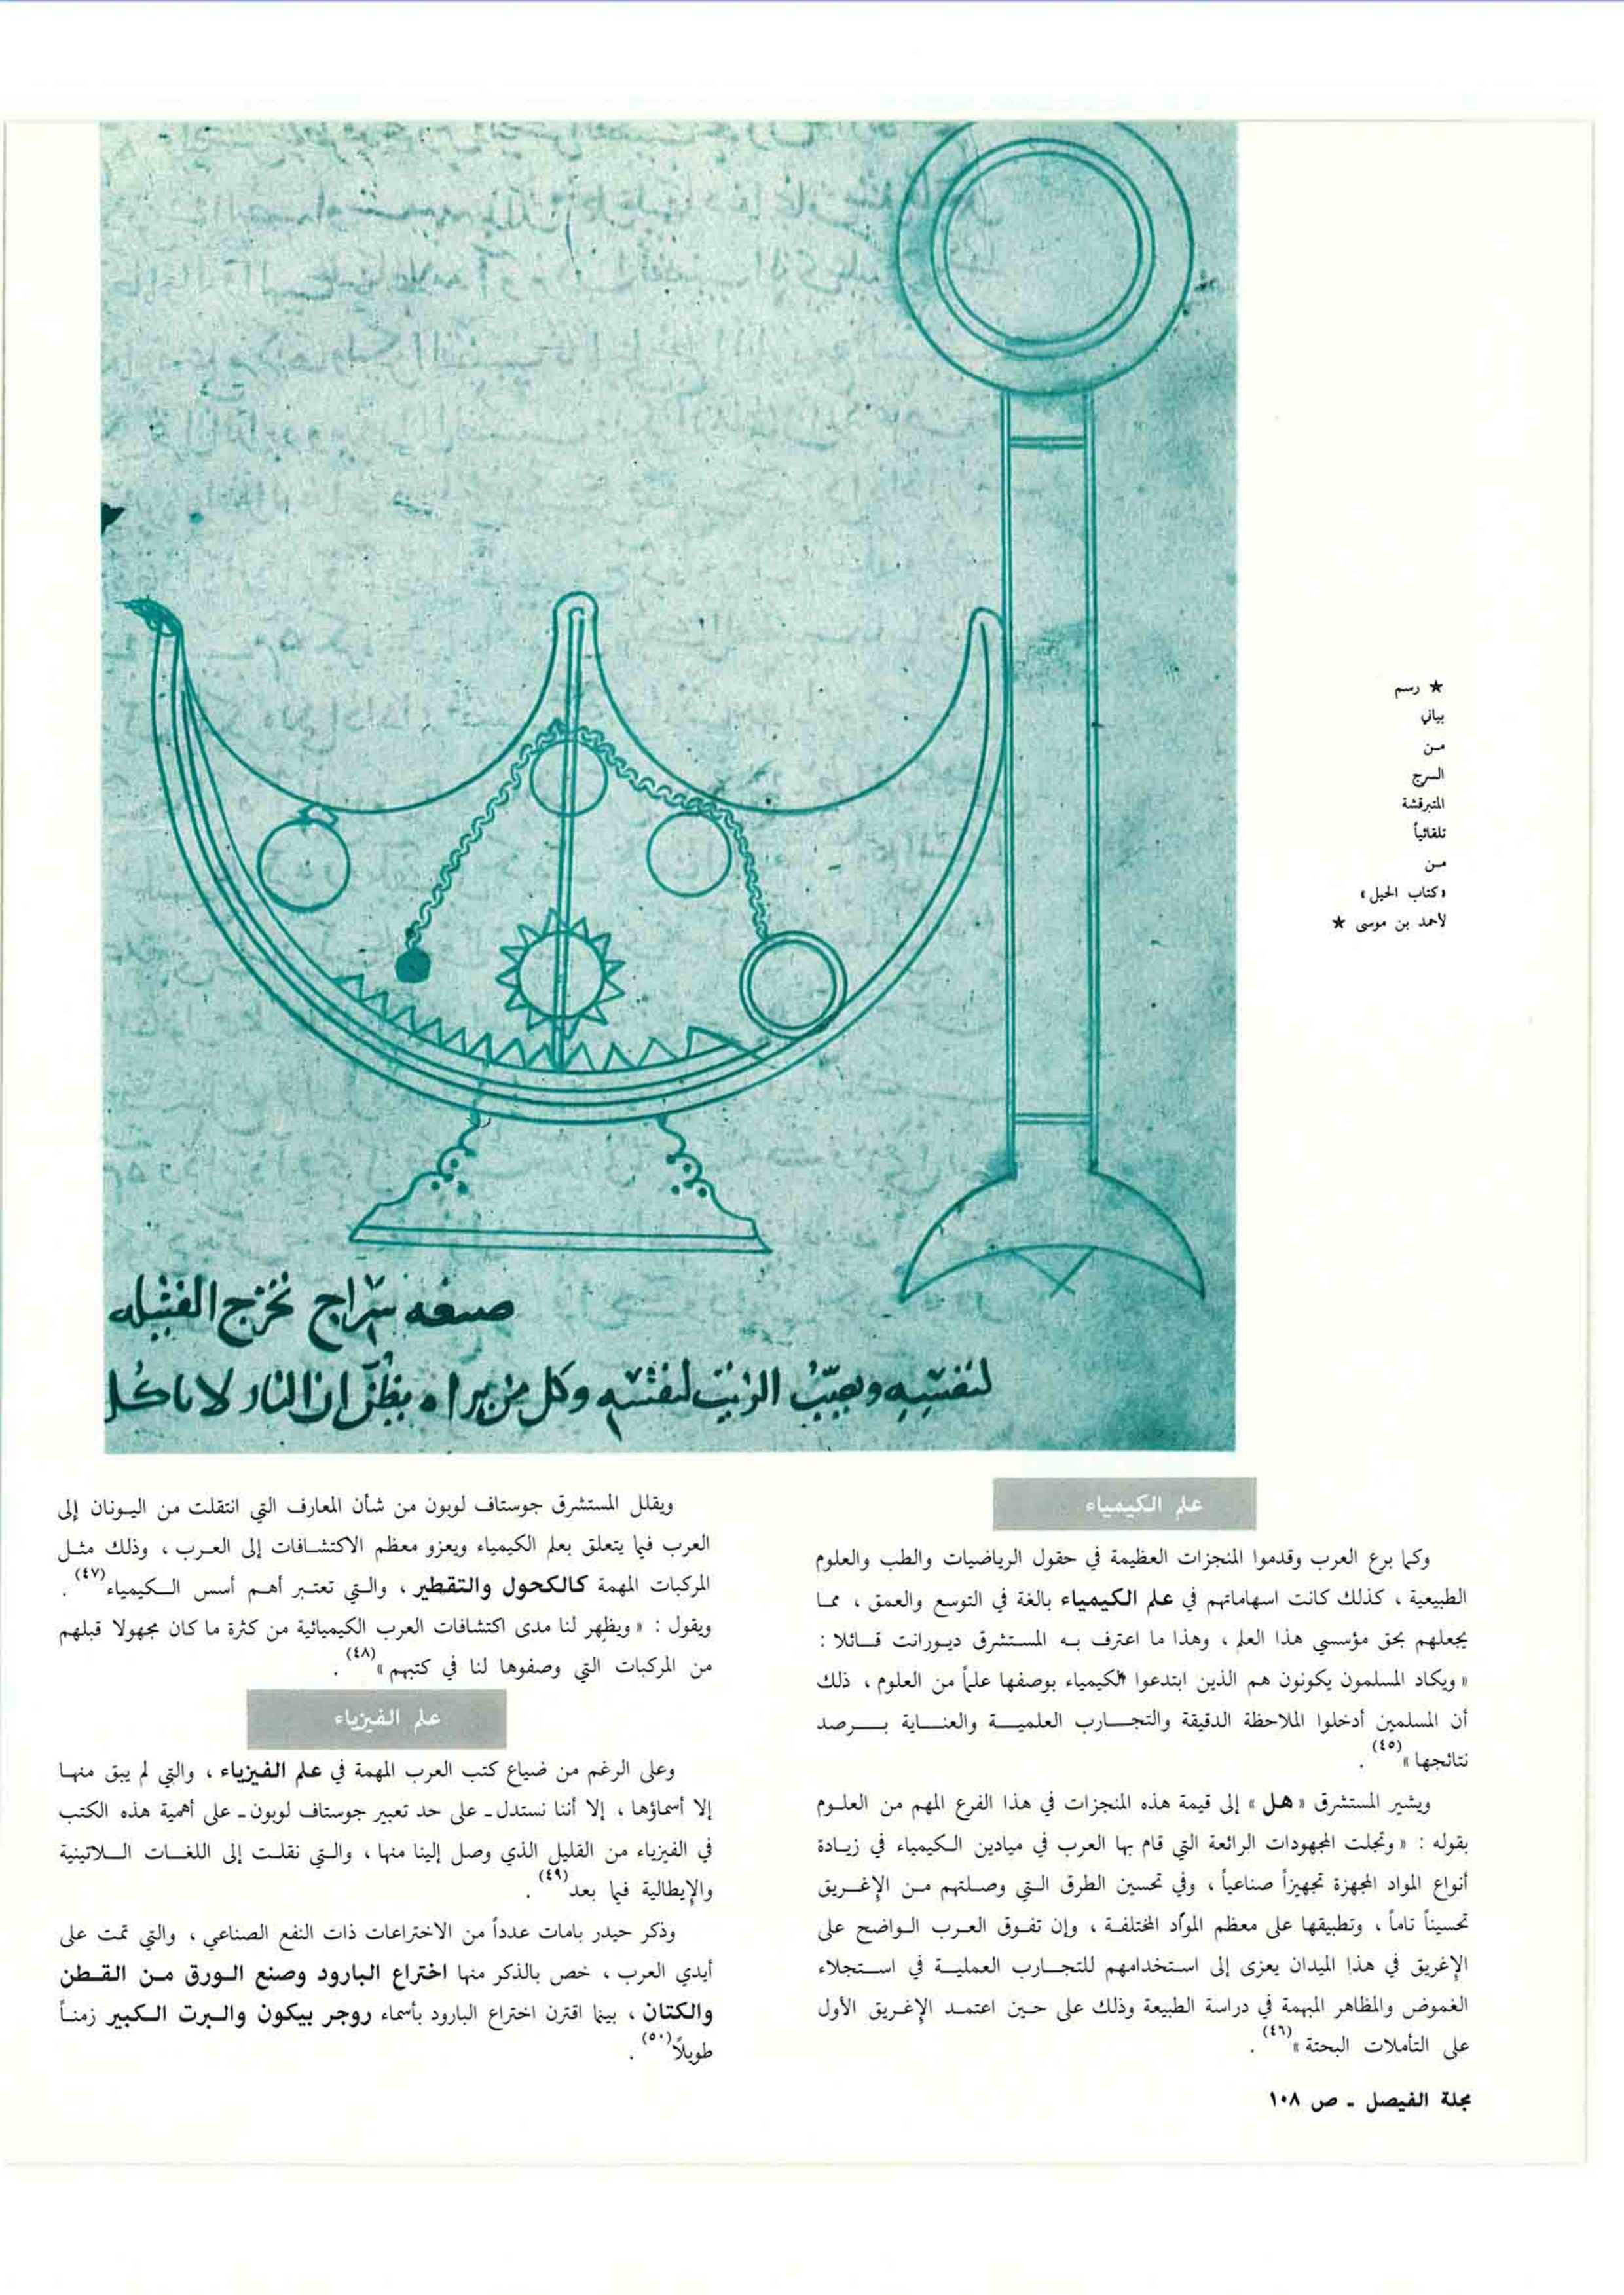 ★ رسم
بياني
من
السرج
المتبرقشة
تلقائياً
من
«كتاب الحيل»
لأحمد بن موسى ★
صنعه سراج تخرج الفتيله
لنفسه ويصب الزيت لنفسه وكل من يراه يظن ان النار لا تاكل
علم الكيمياء
وكما برع العرب وقدموا المنجزات العظيمة في حقول الرياضيات والطب والعلوم
الطبيعية ، كذلك كانت اسهاماتهم في علم الكيمياء بالغة في التوسع والعمق ، مما
يجعلهم بحق مؤسسي هذا العلم ، وهذا ما اعترف به المستشرق ديورانت قائلا :
« ويكاد المسلمون يكونون هم الذين ابتدعوا الكيمياء بوصفها علماً من العلوم ، ذلك
أن المسلمين أدخلوا الملاحظة الدقيقة والتجارب العلمية والعناية برصد
نتائجها »(٤٥) .
ويشير المستشرق « هل » إلى قيمة هذه المنجزات في هذا الفرع المهم من العلوم
بقوله : « وتجلت المجهودات الرائعة التي قام بها العرب في ميادين الكيمياء في زيادة
أنواع المواد المجهزة تجهيزاً صناعياً ، وفي تحسين الطرق التي وصلتهم من الإغريق
تحسيناً تاماً ، وتطبيقها على معظم المواد المختلفة ، وإن تفوق العرب الواضح على
الإغريق في هذا الميدان يعزى إلى استخدامهم للتجارب العملية في استجلاء
الغموض والمظاهر المبهمة في دراسة الطبيعة وذلك على حين اعتمد الإغريق الأول
على التأملات البحتة »(٤٦) .
ويقلل المستشرق جوستاف لوبون من شأن المعارف التي انتقلت من اليونان إلى
العرب فيما يتعلق بعلم الكيمياء ويعزو معظم الاكتشافات إلى العرب ، وذلك مثل
المركبات المهمة كالكحول والتقطير ، والتي تعتبر أهم أسس الكيمياء(٤٧) .
ويقول : « ويظهر لنا مدى اكتشافات العرب الكيميائية من كثرة ما كان مجهولا قبلهم
من المركبات التي وصفوها لنا في كتبهم »(٤٨) .
علم الفيزياء
وعلى الرغم من ضياع كتب العرب المهمة في علم الفيزياء ، والتي لم يبق منها
إلا أسماؤها ، إلا أننا نستدل ـ على حد تعبير جوستاف لوبون ـ على أهمية هذه الكتب
في الفيزياء من القليل الذي وصل إلينا منها ، والتي نقلت إلى اللغات اللاتينية
والإيطالية فيما بعد(٤٩) .
وذكر حيدر بامات عدداً من الاختراعات ذات النفع الصناعي ، والتي تمت على
أيدي العرب ، خص بالذكر منها اختراع البارود وصنع الورق من القطن
والكتان ، بينما اقترن اختراع البارود بأسماء روجر بيكون والبرت الكبير زمناً
طويلاً(٥٠) .
مجلة الفيصل ـ ص ١٠٨